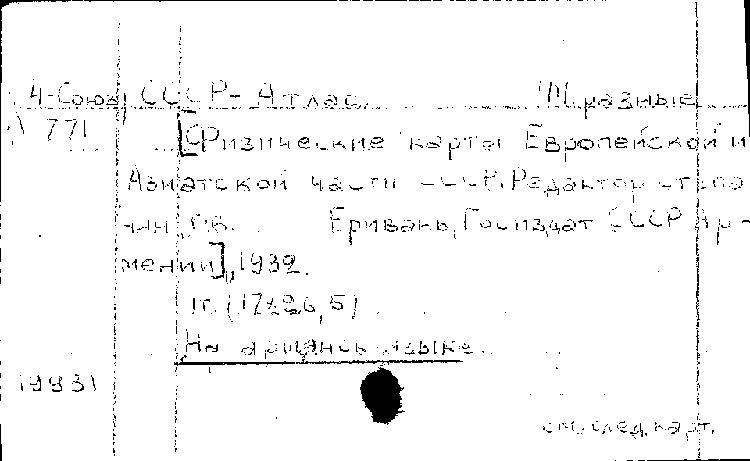 4-Союз СССР-Атлас Ш. разные
771
[Физические карты Европейской и
Азиатской части СССР. Редактор Степа-
нян, Г.В. Еривань, Госиздат ССР Ар-
мении], 1932.
1г. (17х26,5)
На армянск. языке.
19931
см. след. карт.